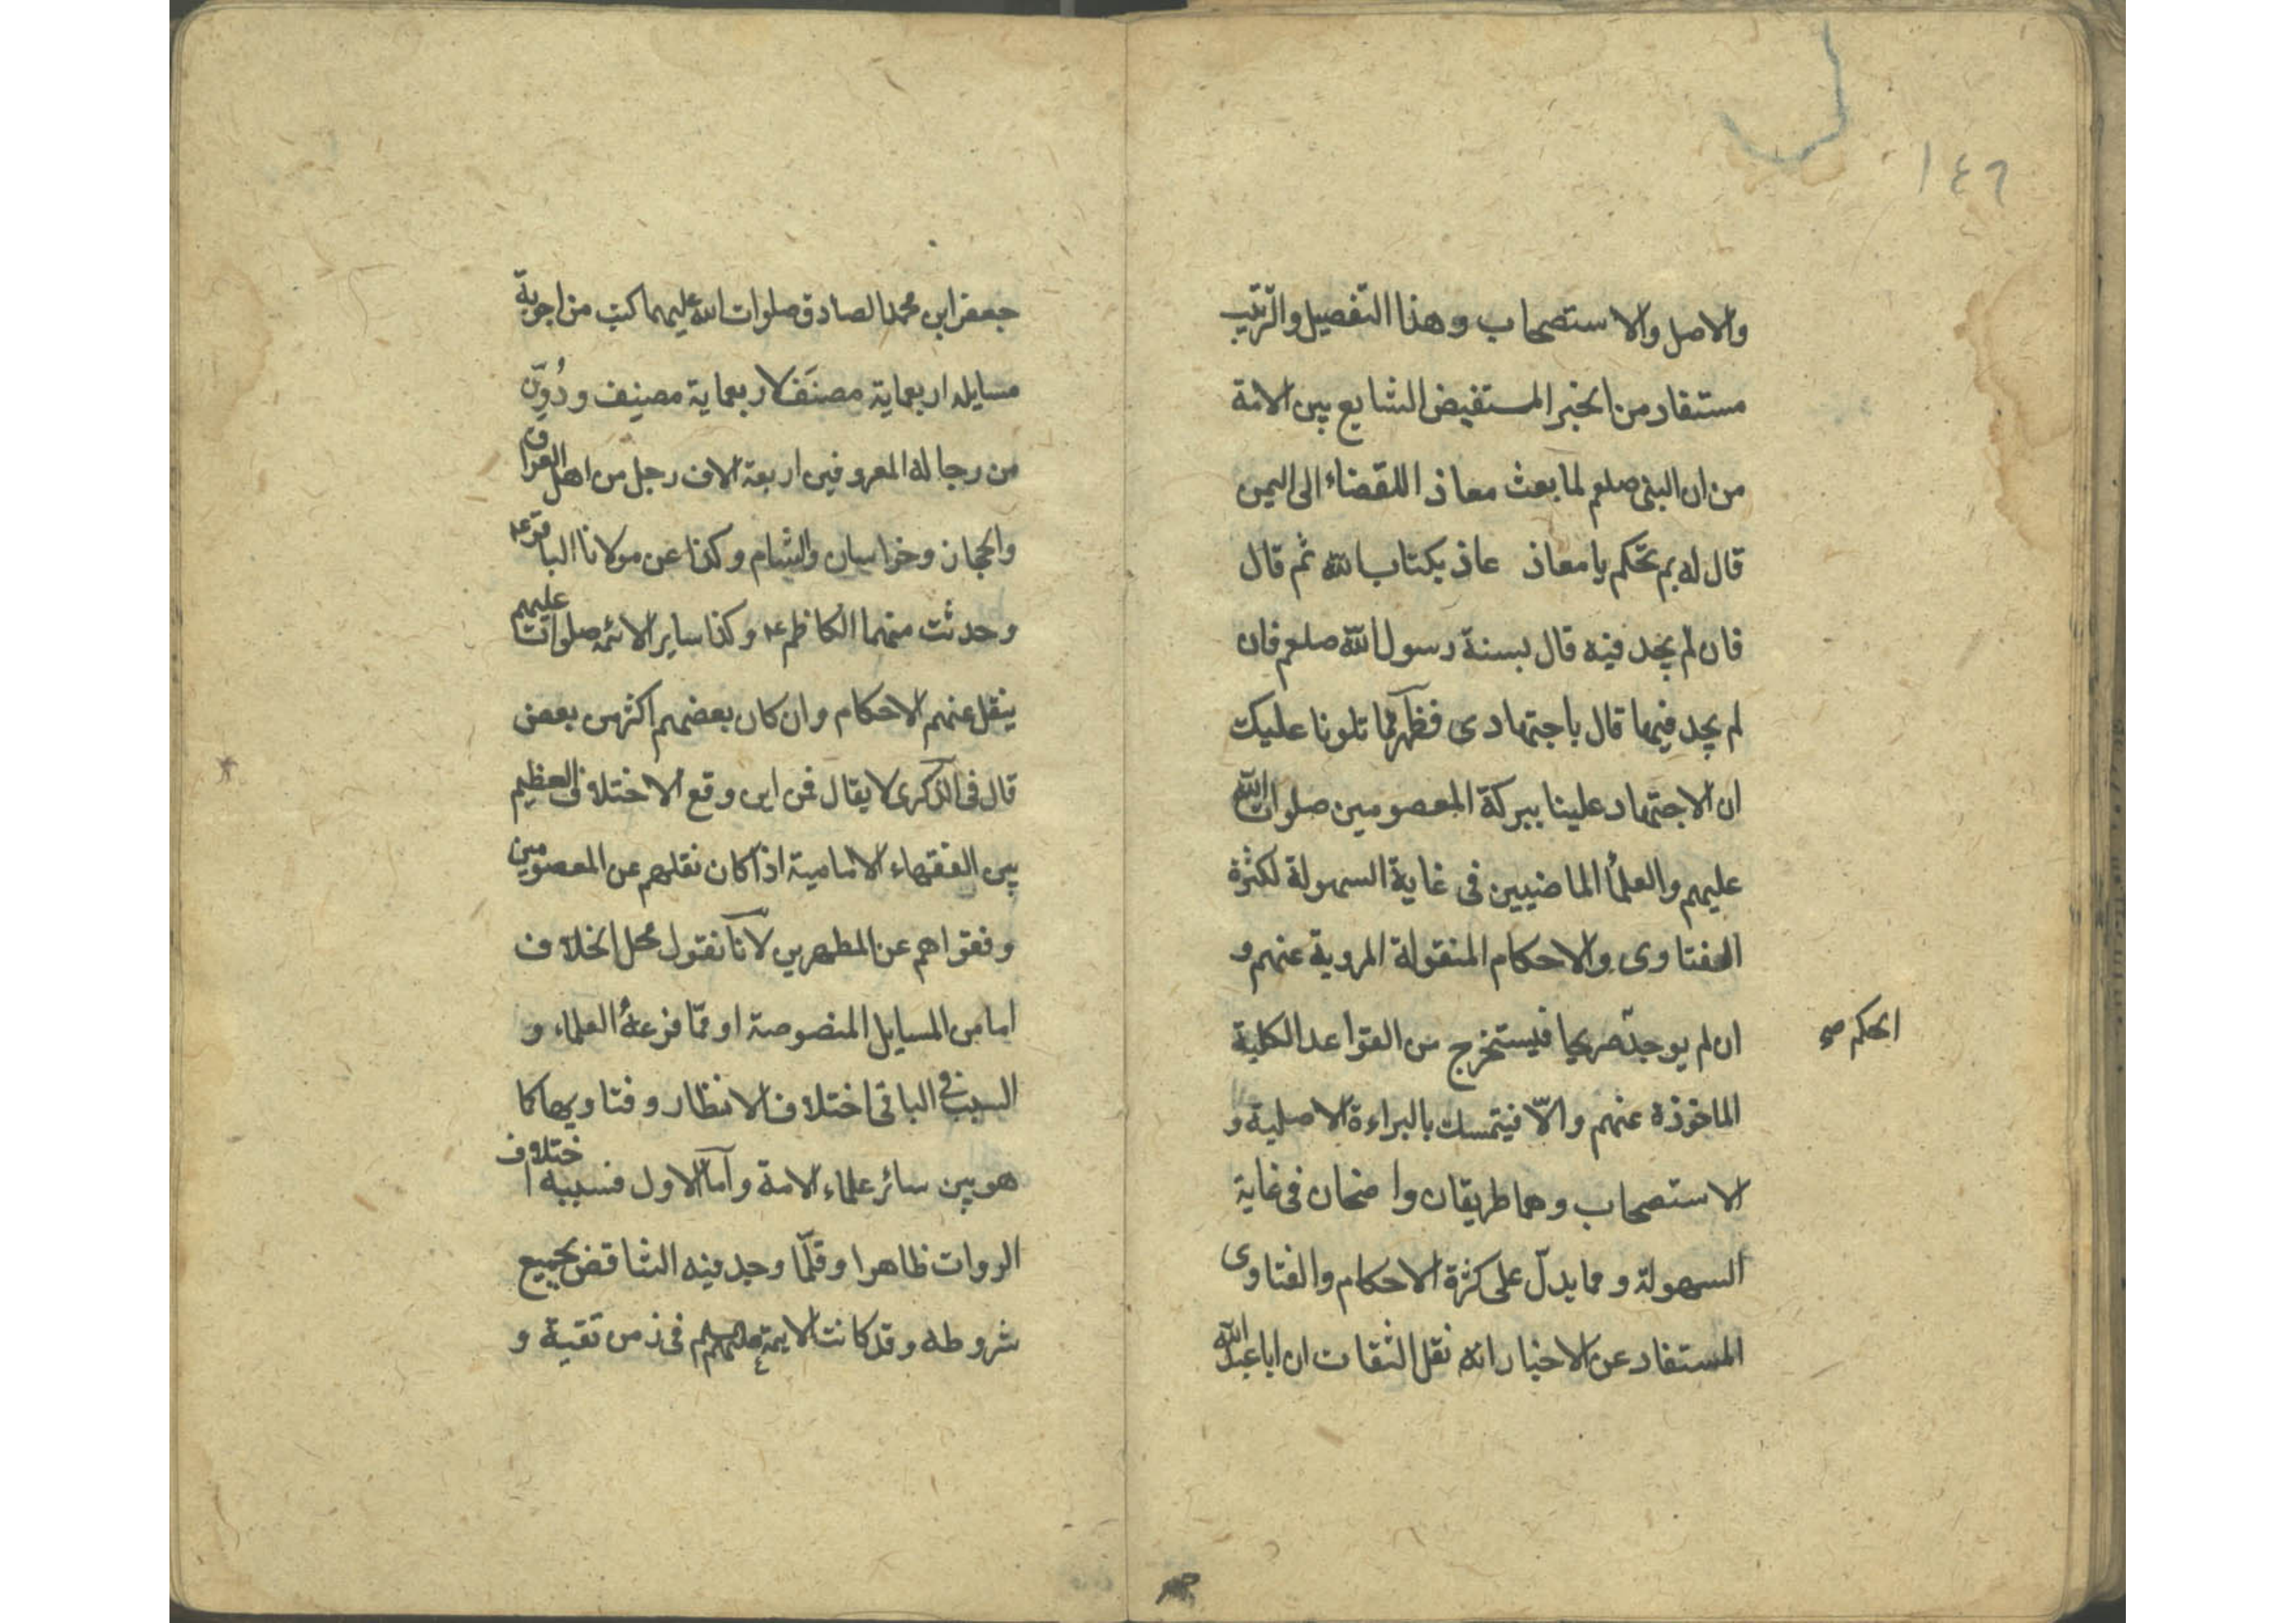 ١٤٦
والاصل والاستصحاب وهذا التفصيل والترتيب
مستفاد من الخبر المستفيض الشايع بين الامة
من ان النبى صلعم لما بعث معاذا للقضاء الى اليمن
قال له بم تحكم يا معاذ عاذ بكتاب الله ثم قال
فان لم يجد فيه قال بسنة رسول الله صلعم فان
لم يجد فيها قال باجتهادى فظهر مما تلونا عليك
ان الاجتهاد علينا ببركة المعصومين صلوات الله
عليهم والعلماء الماضيين فى غاية السهولة لكثرة
الفتاوى والاحكام المنقولة المروية عنهم و
ان لم يوجد صريحا فيستخرج من القواعد الكلية
الحكم صح
الماخوذة عنهم والّا فيتمسك بالبراءة الاصلية و
الاستصحاب وهما طريقان واضحان فى غاية
السهولة ومما يدلّ على كثرة الاحكام والفتاوى
المستفاد عن الاخبار انه نقل الثقات ان ابا عبد الله
جعفر ابن محمد الصادق صلوات الله عليهما كتب من اجوبة
مسايله اربعماية مصنَف لاربعماية مصنِف ودُوِّن
من رجاله المعروفين اربعة الاف رجل من اهل العراق
والحجاز وخراسان والشام وكذا عن مولانا الباقر ع
وحدثت منهما الكاظم ع وكذا ساير الائمه صلوات عليهم
ينقل عنهم الاحكام وان كان بعضهم اكثر من بعض
قال فى الذكرى لا يقال فمن اين وقع الاختلاف العظيم
بين الفقهاء الامامية اذا كان نقلهم عن المعصومين
وفقواهم عن المطهرين لانا نقول محل الخلاف
اما من المسايل المنصوصة او ممّا فرعهُ العلماء و
السبب فى الباقى اختلاف الانظار وفتاويها كما
هو بين سائر علماء الامة وامّا الاول فسببه اختلاف
الروات ظاهرا وقلّما وجد فيه التناقض بجميع
شروطه وقد كانت الايمة عليهم السلم فى زمن تقية و